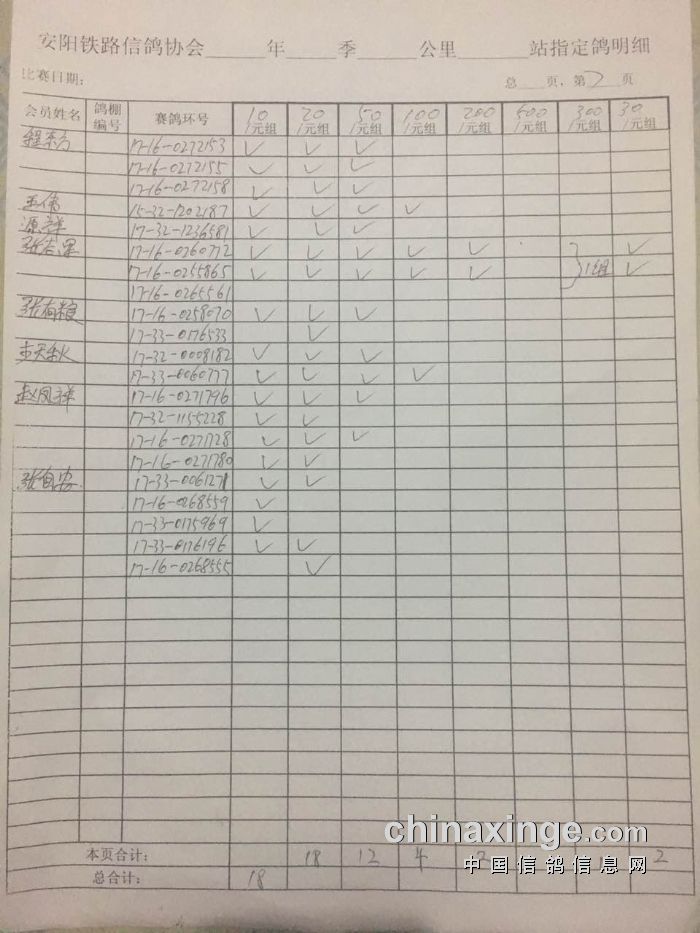 安阳铁路信鸽协会______年______季______公里______站指定鸽明细
比赛日期: 总___页, 第2页
会员姓名 鸽棚编号 赛鸽环号 10/元组 20/元组 50/元组 100/元组 200/元组 500/元组 300/元组 30/元组
17-16-0272153 ✓ ✓ ✓
17-16-0272155 ✓ ✓ ✓
17-16-0272158 ✓ ✓ ✓
王伟 15-32-1202187 ✓ ✓ ✓ ✓
17-32-1236581 ✓ ✓ ✓
17-16-0260772 ✓ ✓ ✓ ✓ ✓ ✓
17-16-0255865 ✓ ✓ ✓ ✓ ✓ 1组 ✓
17-16-0265561
张有粮 17-16-0258070 ✓ ✓ ✓
17-33-0176533 ✓
步天秋 17-32-0008182 ✓ ✓ ✓
17-33-0060777 ✓ ✓ ✓ ✓
赵凤祥 17-16-0271796 ✓ ✓ ✓
17-32-1155228 ✓ ✓
17-16-0271728 ✓ ✓ ✓
17-16-0271780 ✓ ✓
17-33-0061271 ✓ ✓
17-16-0268559 ✓
17-33-0175969 ✓
17-33-0176196 ✓ ✓
17-16-0268555 ✓
本页合计: 18 12 4 2 1 2
总合计: 18
chinaxinge.com
中国信鸽信息网